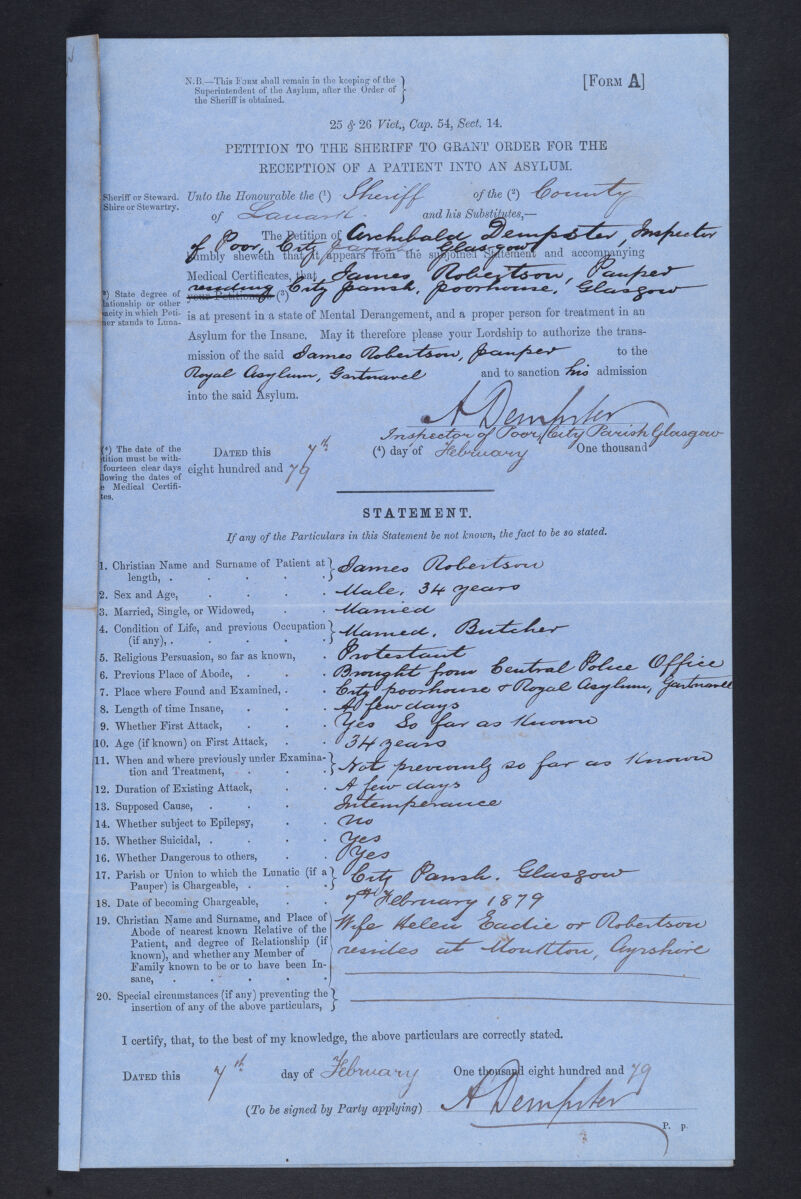 N.B.—This Form shall remain in the keeping of the
Superintendent of the Asylum, after the Order of
the Sheriff is obtained.
[Form A]
25 & 26 Vict., Cap. 54, Sect. 14.
PETITION TO THE SHERIFF TO GRANT ORDER FOR THE
RECEPTION OF A PATIENT INTO AN ASYLUM.
Sheriff or Steward.
Shire or Stewartry.
Unto the Honourable the (1) Sheriff of the (2) County
of Lanark and his Substitutes,—
The Petition of Archibald Dempster, Inspector
of Poor, City Parish Glasgow
humbly sheweth that it appears from the subjoined Statement and accompanying
Medical Certificates, that James Robertson, Pauper
residing City parish, poorhouse, Glasgow
your Petitioner's (3)
(3) State degree of
lationship or other
acity in which Peti-
ner stands to Luna-
is at present in a state of Mental Derangement, and a proper person for treatment in an
Asylum for the Insane. May it therefore please your Lordship to authorize the trans-
mission of the said James Robertson, pauper to the
Royal Asylum, Gartnavel and to sanction his admission
into the said Asylum.
A Dempster
Inspector of Poor, City Parish Glasgow
(4) The date of the
tition must be with-
fourteen clear days
lowing the dates of
e Medical Certifi-
tes.
Dated this 7th (4) day of February One thousand
eight hundred and 79
STATEMENT.
If any of the Particulars in this Statement be not known, the fact to be so stated.
1. Christian Name and Surname of Patient at
length, . . . . . James Robertson
2. Sex and Age, . . . . Male, 34 years
3. Married, Single, or Widowed, . . Married
4. Condition of Life, and previous Occupation
(if any), . . . . . Married, Butcher
5. Religious Persuasion, so far as known, . Protestant
6. Previous Place of Abode, . . . Brought from Central Police Office
7. Place where Found and Examined, . . City poorhouse & Royal Asylum, Gartnavel
8. Length of time Insane, . . . A few days
9. Whether First Attack, . . . Yes So far as Known
10. Age (if known) on First Attack, . . 34 years
11. When and where previously under Examina-
tion and Treatment, . . . Not previously so far as Known
12. Duration of Existing Attack, . . A few days
13. Supposed Cause, . . . . Intemperance
14. Whether subject to Epilepsy, . . No
15. Whether Suicidal, . . . . Yes
16. Whether Dangerous to others, . . Yes
17. Parish or Union to which the Lunatic (if a
Pauper) is Chargeable, . . . City Parish. Glasgow
18. Date of becoming Chargeable, . . 7th February 1879
19. Christian Name and Surname, and Place of
Abode of nearest known Relative of the
Patient, and degree of Relationship (if
known), and whether any Member of
Family known to be or to have been In-
sane, . . . . .
Wife Helen Eadie or Robertson
resides at Monkton, Ayrshire
20. Special circumstances (if any) preventing the
insertion of any of the above particulars,
I certify, that, to the best of my knowledge, the above particulars are correctly stated.
Dated this 7th day of February One thousand eight hundred and 79
(To be signed by Party applying) A Dempster
P. p.